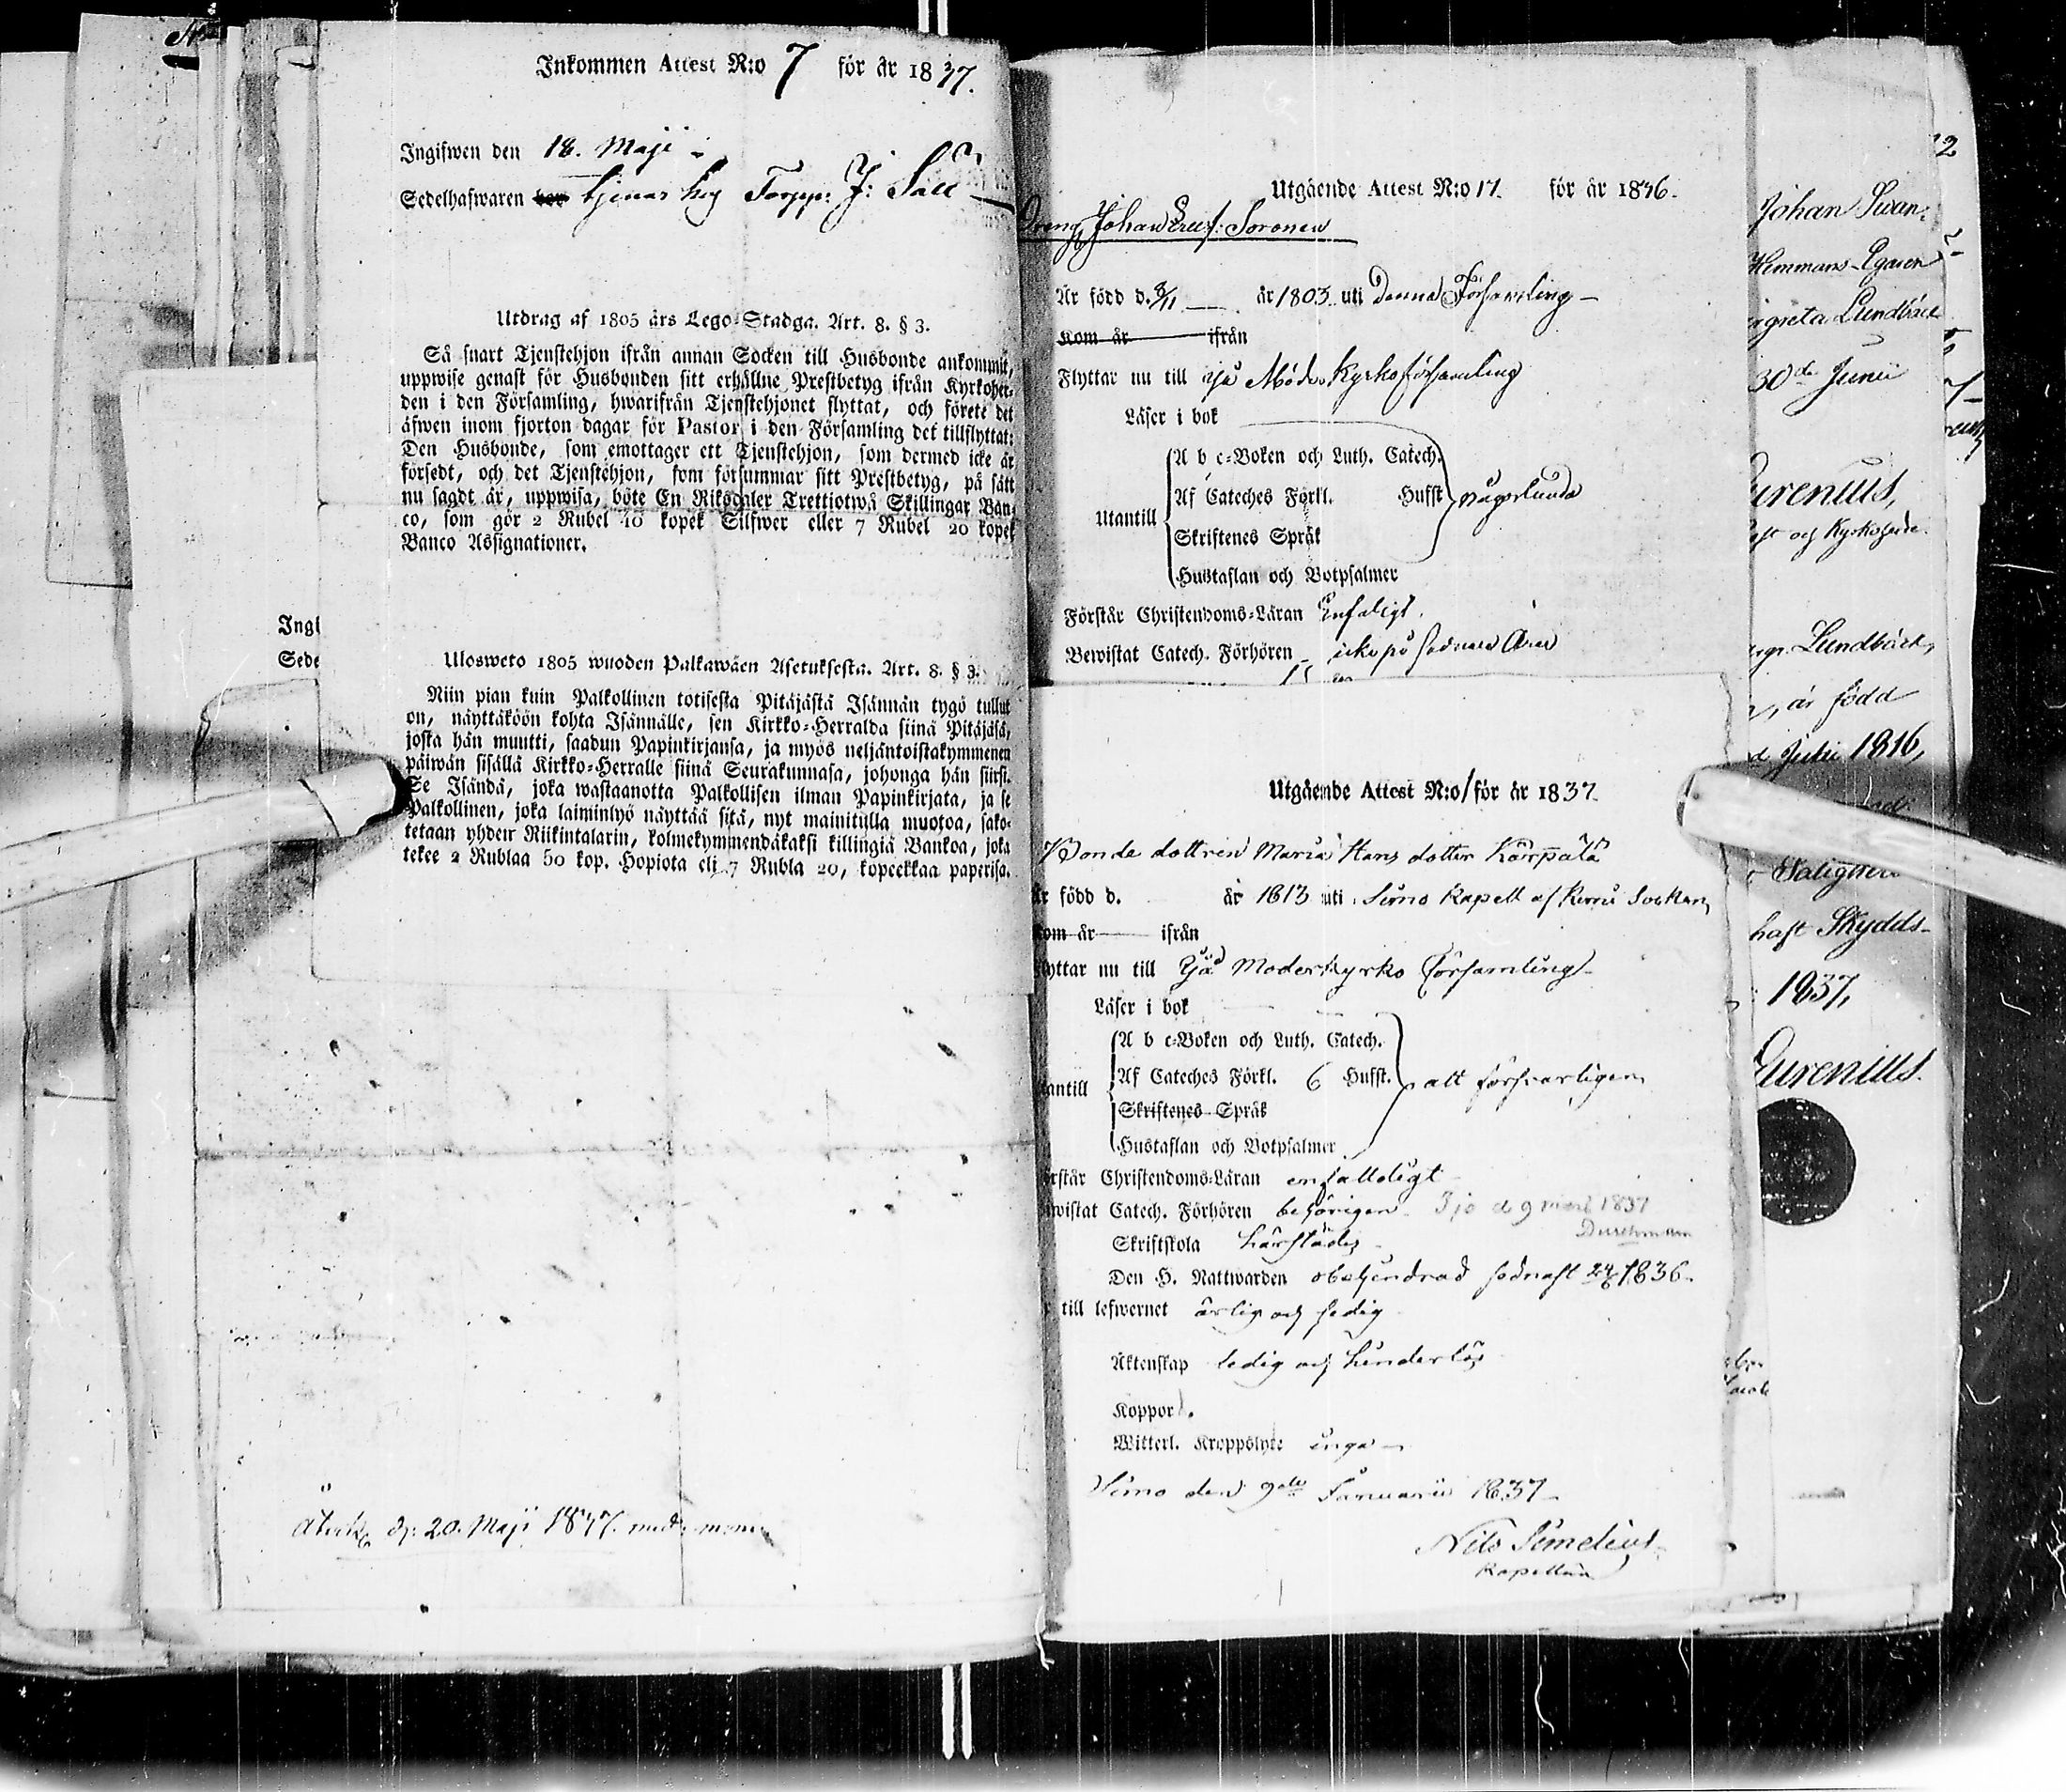 Inkommen Attest N:o 7 för år 1837.
Ingifwen den 18. Maji
Sedelhafwaren tjenar hos Torpp: J: Sall
Utdrag af 1805 års Lego-Stadga. Art. 8. § 3.
Så snart Tjenstehjon ifrån annan Socken till Husbonde ankommit,
uppwise genast för Husbonden sitt erhållne Prestbetyg ifrån Kyrkoher-
den i den Församling, hwarifrån Tjenstehjonet flyttat, och förete det
äfwen inom fjorton dagar för Pastor i den Församling det tillflyttat:
Den Husbonde, som emottager ett Tjenstehjon, som dermed icke är
försedt, och det Tjenstehjon, som försummar sitt Prestbetyg, på sätt
nu sagdt är, uppwisa, böte En Riksdaler Trettiotwå Skillingar Ban-
co, som gör 2 Rubel 40 kopek Silfwer eller 7 Rubel 20 kopek
Banco Assignationer.
Ulosweto 1805 wuoden Palkawäen Asetuksesta. Art. 8. § 3.
Niin pian kuin Palkollinen totisesta Pitäjästä Isännän tygö tullut
on, näyttäköön kohta Isännälle, sen Kirkko-Herralda siinä Pitäjäsä,
josta hän muutti, saadun Papinkirjansa, ja myös neljäntoistakymmenen
päiwän sisällä Kirkko-Herralle siinä Seurakunnasa, johonga hän siirsi.
Se Isändä, joka wastaanotta Palkollisen ilman Papinkirjata, ja se
Palkollinen, joka laiminlyö näyttää sitä, nyt mainitulla muotoa, sako-
tetaan yhden Riikintalarin, kolmekymmendäkaksi killingiä Bankoa, joka
tekee 2 Rublaa 50 kop. Hopiota eli 7 Rubla 20, kopeekkaa paperisa.
Ingi
Sede
d: 20. Maji 1837.
Utgående Attest N:o 17. för år 1836.
Dreng Johan Ers: Soronen
Är född d. 3/11 år 1803 uti denna Församling
Kom år ifrån
Flyttar nu till Ijo Moder Kyrko församling
Läser i bok
Utantill
A b c-Boken och Luth. Catech.
Af Cateches Förkl. Hufst.
någorlunda
Skriftenes Språk
Hustaflan och Botpsalmer
Förstår Christendoms-Läran Enfaldigt.
Bewistat Catech. Förhören icke på sednare Åren
Utgående Attest N:o 1 för år 1837.
Bonde dottren Maria Hans dotter Karpälä
är född d. år 1813 uti Simo Kapell af Kemi Socken
om år ifrån
lyttar nu till Ijo Moderkyrko församling
Läser i bok
antill
A b c-Boken och Luth. Catech.
Af Cateches Förkl. 6 Hufst.
allt försvarligen
Skriftenes Språk
Hustaflan och Botpsalmer
rstår Christendoms-Läran enfalldigt
wistat Catech. Förhören behörigen Ijo d 9 mars 1837
Durchman
Skriftskola härstädes
Den H. Nattwarden obehindrad sednast 1836.
till lefwernet ärlig och sedig
Äktenskap ledig och hinderlös
Koppor
Witterl. Kroppslyte inga
Simo den 9de Januarii 1837
Nils Simelius
Kapellan
2
Johan Swan
Hemmans-Egaren
rgreta Lundbäck
30de Junii
urenius,
och Kyrkoherde.
Lundbäck,
är född
Julii 1816,
Salighet
haft Skydds-
1837,
urenius.